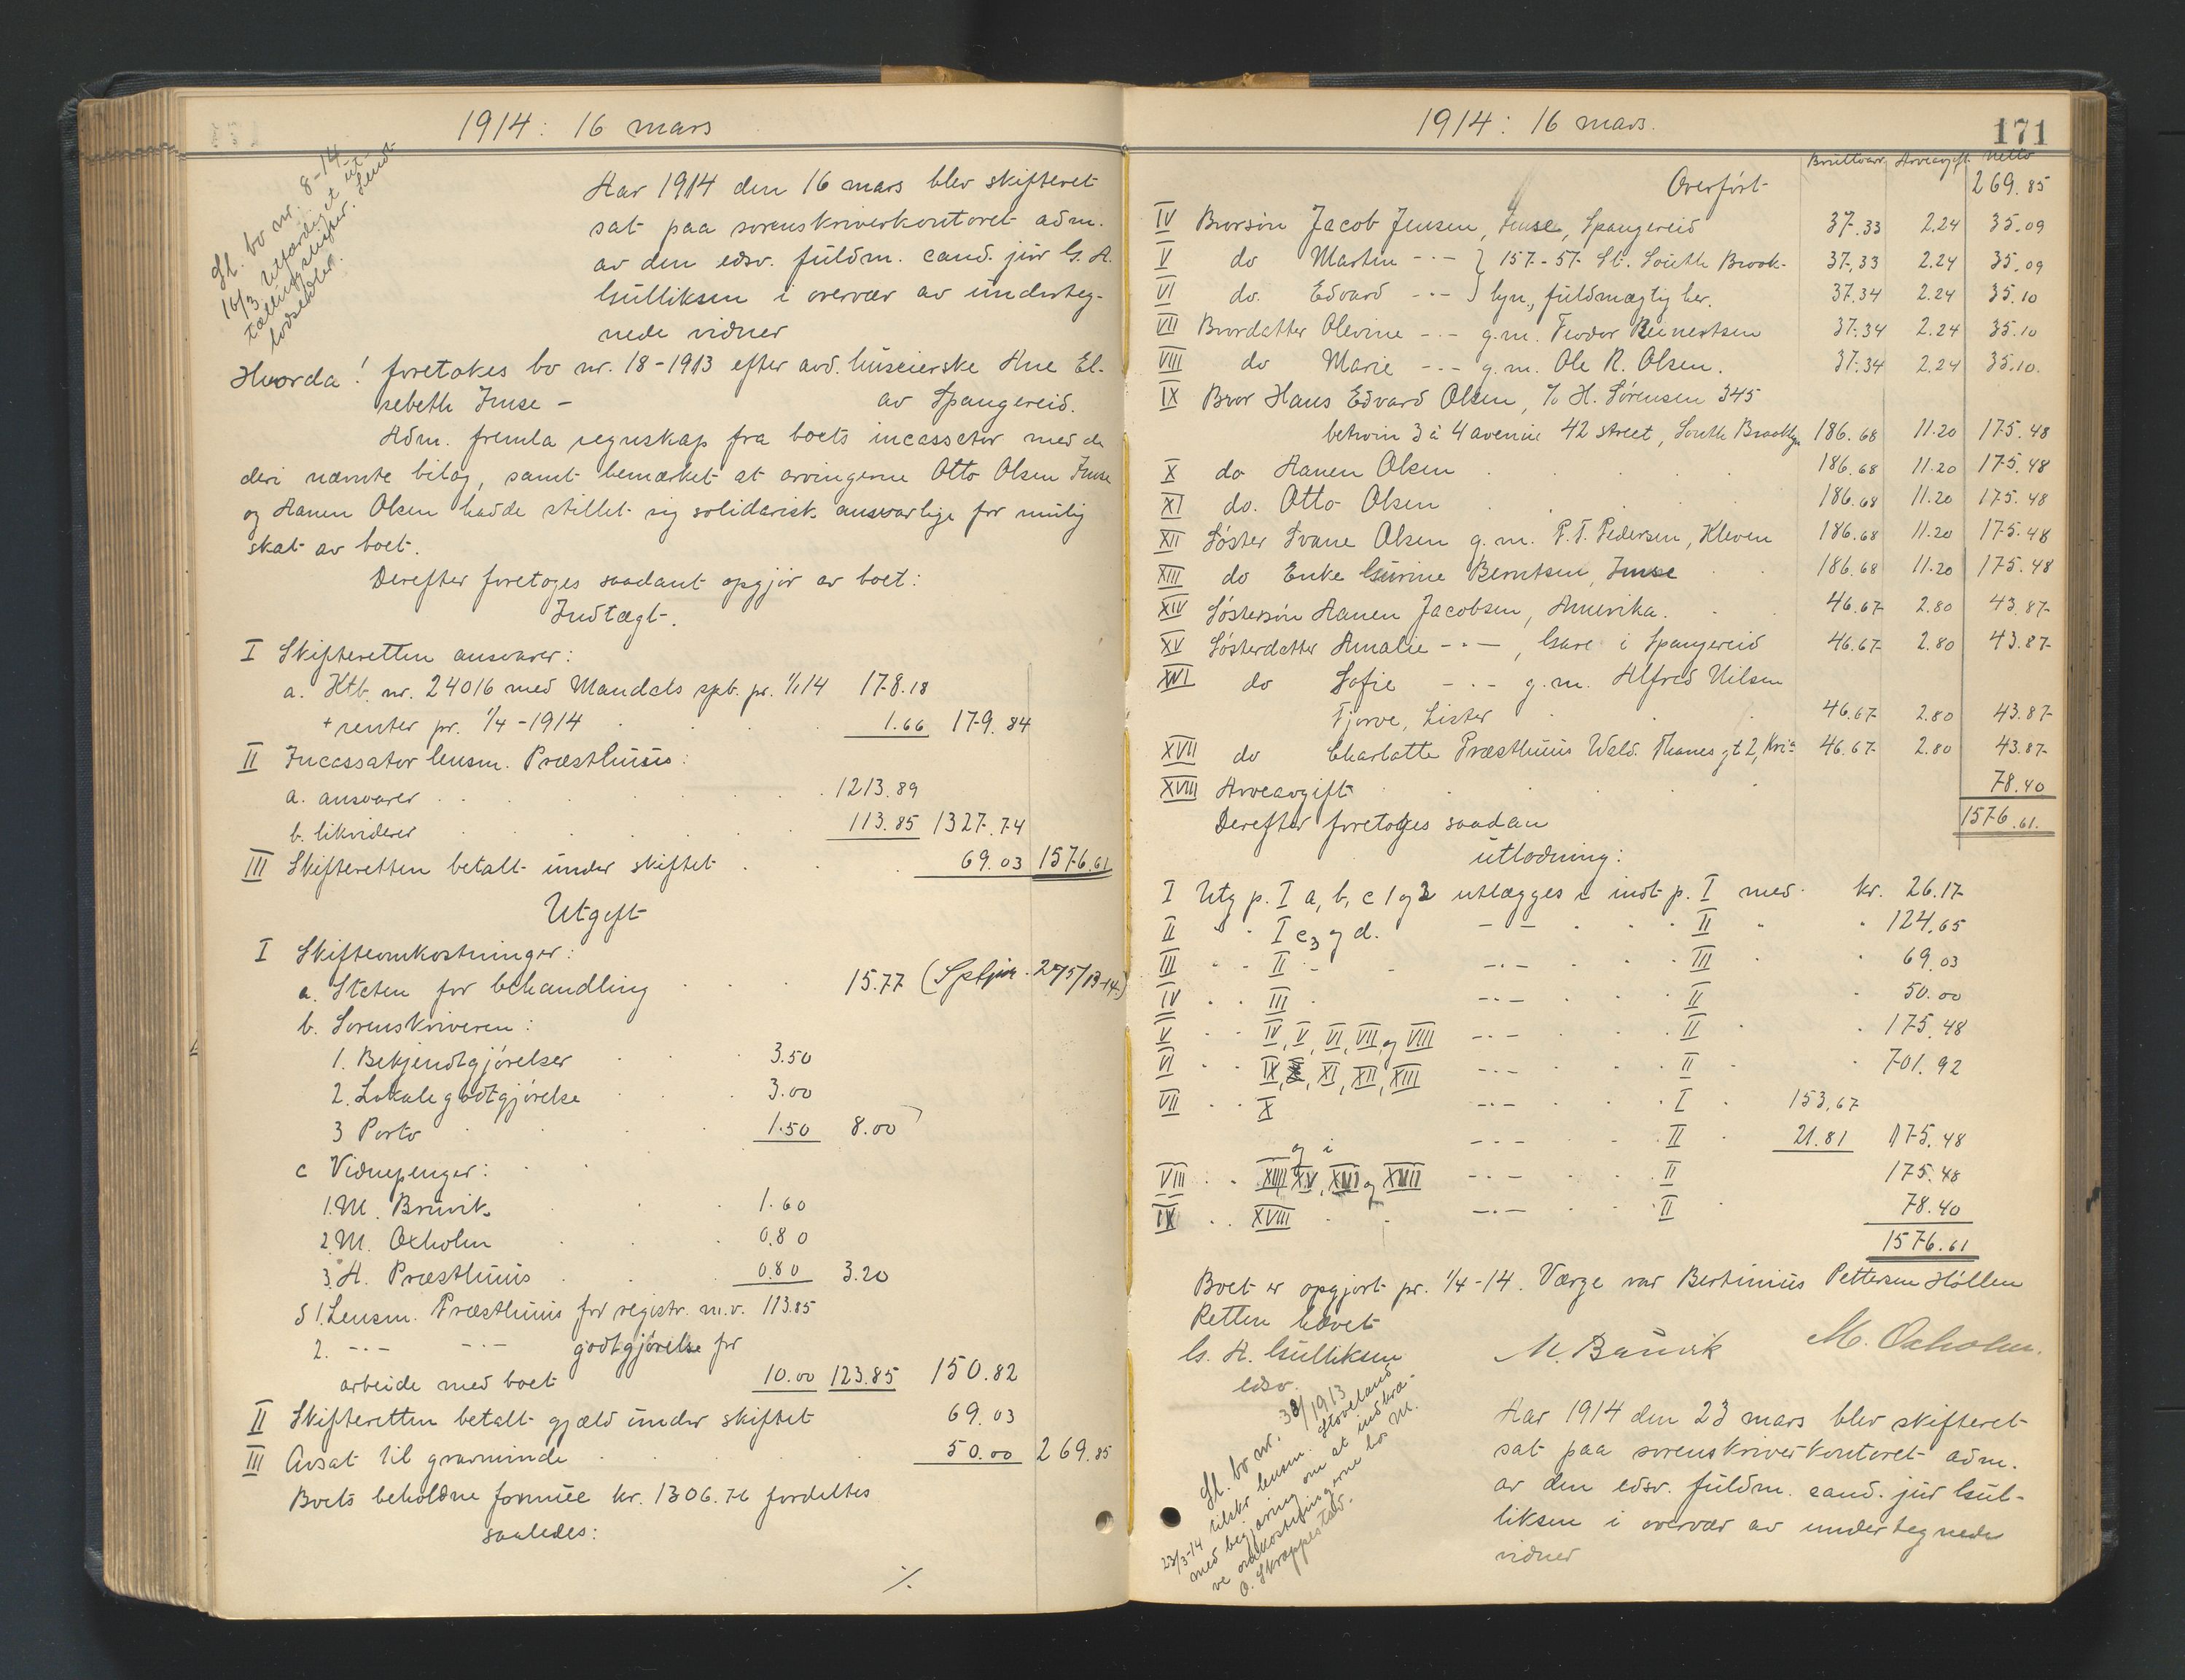 1914: 16 mars
St. bo nr. 8-14
16/3 Utfærdiget ut-
lodsedler. Sendt
Aar 1914 den 16 mars blev skifteret
sat paa sorenskriverkontoret adm.
av den edsv. fuldm. cand. jur G. A.
Gulliksen i overvær av underteg-
nede vidner
Hvorda! foretokes bo nr. 18-1913 efter avd. huseierske Ane El-
sebeth Imse - av Spangereid.
Adm. fremla regnskap fra boets incassator med de
deri nævnte bilag, samt bemærket at arvingerne Otto Olsen Imse
og Aanen Olsen hadde stillet sig solidarisk ansvarlige for mulig
skat av boet.
Derefter foretoges saadant opgjør av boet:
Indtægt.
I Skifteretten ansvarer:
a. Ktb. nr. 24016 med Mandals spb. pr. 1/1 14 178.18
+ renter pr. 1/4-1914 1.66 179.84
II Incassator lensm. Præsthuus:
a. ansvarer 1213.89
b. likviderer 113.85 1327.74
III Skifteretten betalt under skiftet 69.03 1576.61
Utgift
I Skifteomkostninger:
a. Staten for behandling 15.77 (Sptjur. 275/13-14)
b. Sorenskriveren:
1. Bekjendtgjørelser 3.50
2. Lokalegodtgjørelse 3.00
3 Porto 1.50 8.00
c Vidnepenger:
1. M. Bruvik 1.60
2. M. Oxholm 0.80
3. H. Præsthuus 0.80 3.20
d 1. Lensm. Præsthuus for registr. m.v. 113.85
2. -"- -"- godtgjørelse for
arbeide med boet 10.00 123.85 150.82
II Skifteretten betalt gjæld under skiftet 69.03
III Avsat til gravminde 50.00 269.85
Boets beholdne formue kr. 1306.76 fordeltes
saaledes:
./.
1914: 16 mars. 171
Bruttoarv Arveavgift Netto
Overført 269.85
IV Brorsøn Jacob Jensen, Imse, Spangereid 37.33 2.24 35.09
V do Martin -"- } 157-57 St. South Brook- 37.33 2.24 35.09
VI do. Edvard -"- } lyn, fuldmægtig her. 37.34 2.24 35.10
VII Brordatter Olevine -"- g.m. Teodor Reinertsen 37.34 2.24 35.10
VIII do Marie -"- g.m. Ole R. Olsen. 37.34 2.24 35.10.
IX Bror Hans Edvard Olsen, % H. Sørensen 345
betwin 3 à 4 avenue 42 street, South Brooklyn 186.68 11.20 175.48
X do Aanen Olsen 186.68 11.20 175.48
XI do. Otto Olsen 186.68 11.20 175.48
XII Søster Svane Olsen g.m. P.T. Pedersen, Kleven 186.68 11.20 175.48
XIII do Enke Gurine Berntsen, Imse 186.68 11.20 175.48
XIV Søstersøn Aanen Jacobsen, Amerika. 46.67 2.80 43.87
XV Søsterdatter Amalie -"-, Gare i Spangereid 46.67 2.80 43.87
XVI do Sofie -"- g.m. Alfred Nilsen
Tjorve, Lister 46.67 2.80 43.87
XVII do Charlotte Præsthuus Wald. Thranes gt 2, Kria 46.67 2.80 43.87
XVIII Arveavgift 78.40
Derefter foretoges saadan 1576.61.
utlodning:
I Utg p. I a, b, c 1 og 2 utlægges i indt p. I med kr. 26.17
II " " I c3 og d. -"- II " 124.65
III " " II -"- III " 69.03
IV " " III -"- II " 50.00
V " " IV, V, VI, VII og VIII -"- II " 175.48
VI " " IX, XI, XII, XIII -"- II " 701.92
VII " " X -"- I 153.67
og i -"- II 21.81 175.48
VIII " " XIV, XV, XVI og XVII -"- II 175.48
IX " " XVIII -"- II 78.40
1576.61
Boet er opgjort pr. 1/4-14. Værge var Bertinius Pettersen Høllen
Retten hævet
G. A. Gulliksen M. Bruvik M. Oxholm.
edsv.
St. bo nr. 38/1913
23/3-14 tilskr. lensm. Stoveland
med begjæring om at indkræ-
ve omkostningerne hos M.
O. Skroppestad.
Aar 1914 den 23 mars blev skifteret
sat paa sorenskriverkontoret adm.
av den edsv. fuldm. cand. jur Gul-
liksen i overvær av undertegnede
vidner